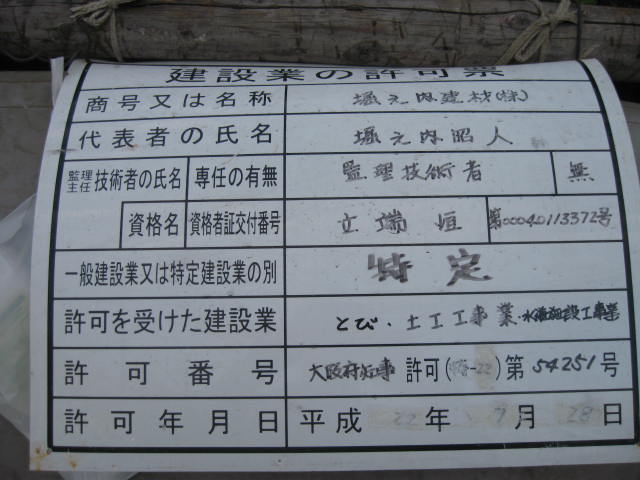 建設業の許可票
商号又は名称 堀之内建材(株)
代表者の氏名 堀之内昭人
監理主任技術者の氏名 専任の有無 監理技術者 無
資格名 資格者証交付番号 立端 恒 第00040113372号
一般建設業又は特定建設業の別 特定
許可を受けた建設業 とび・土工工事業・水道施設工事業
許可番号 大阪府知事 許可(特-22)第54251号
許可年月日 平成22年7月28日